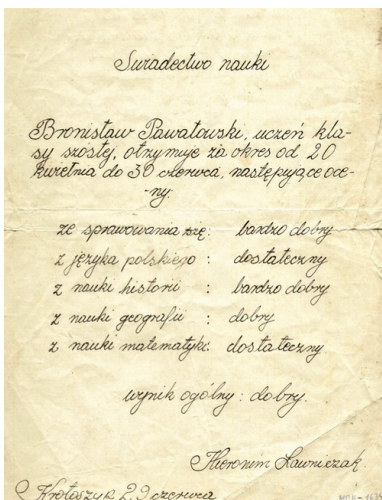 Świadectwo nauki
Bronisław Pawałowski, uczeń kla-
sy szóstej, otrzymuje za okres od 20
kwietnia do 30 czerwca, następujące oce-
-ny:
ze sprawowania się: bardzo dobry
z języka polskiego : dostateczny
z nauki historii : bardzo dobry
z nauki geografii : dobry
z nauki matematyki: dostateczny
wynik ogólny : dobry.
Hieronim Ławniczak
Krotoszyn 29 czerwca